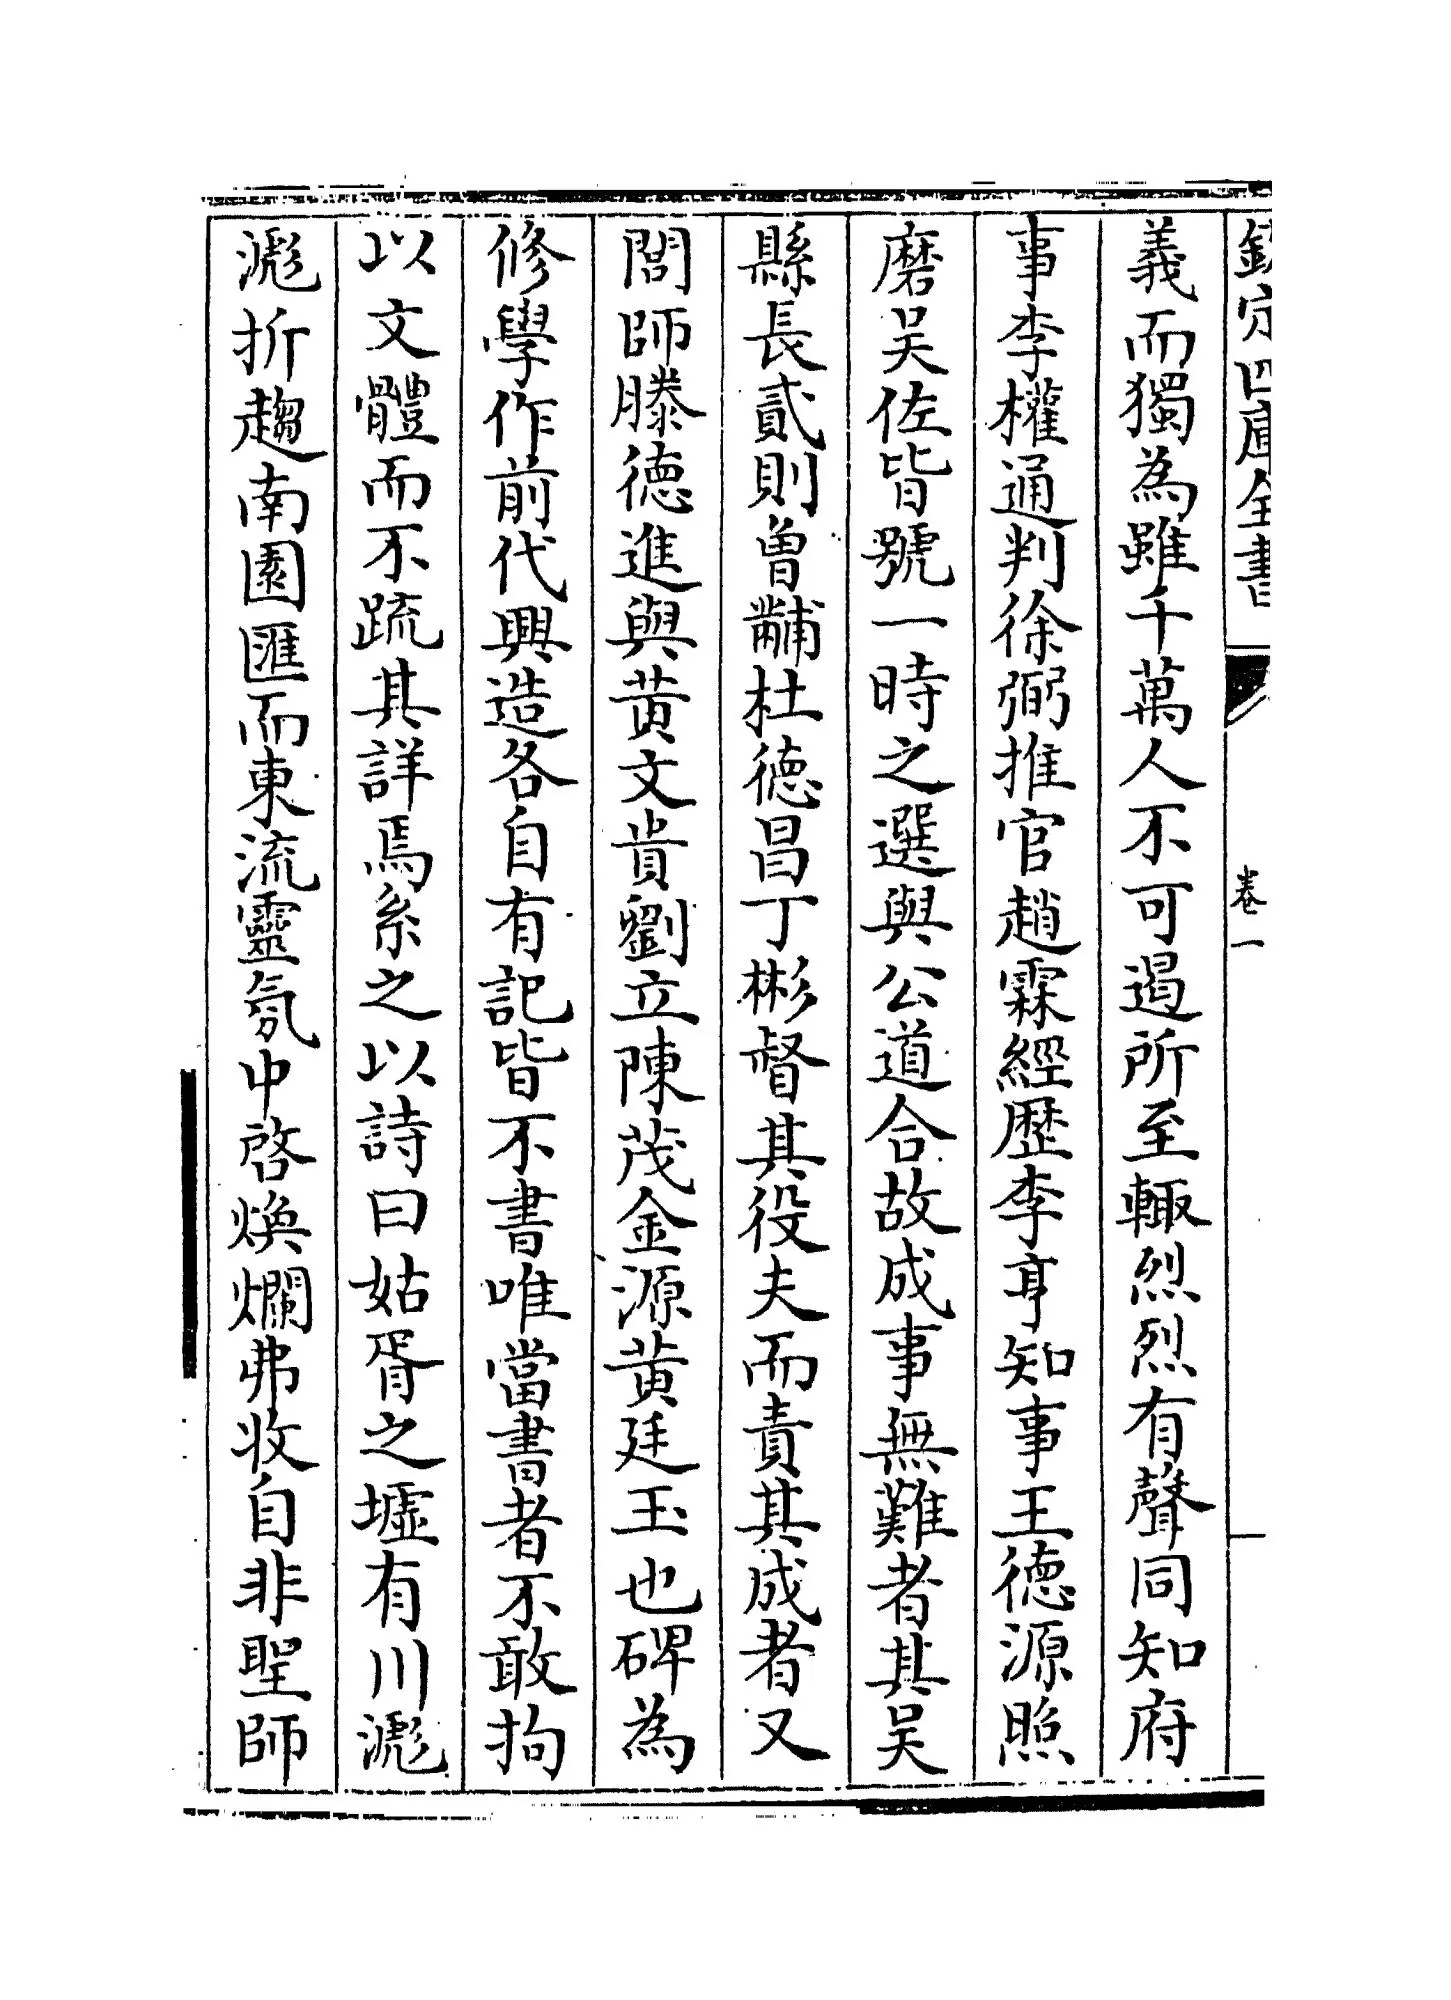 欽定四庫全書
卷一
義而獨為雖千萬人不可遏所至輙烈烈有聲同知府
事李權通判徐弼推官趙霖經歷李亨知事王德源照
磨吳佐皆號一時之選與公道合故成事無難者其吴
縣長貳則曾黼杜德昌丁彬督其役夫而責其成者又
閭師滕德進與黄文貴劉立陳茂金源黄廷玉也碑為
修學作前代興造各自有記皆不書唯當書者不敢拘
以文體而不疏其詳焉系之以詩曰姑胥之墟有川滮
滮折趨南園匯而東流靈氛中啓煥爛弗收自非聖師